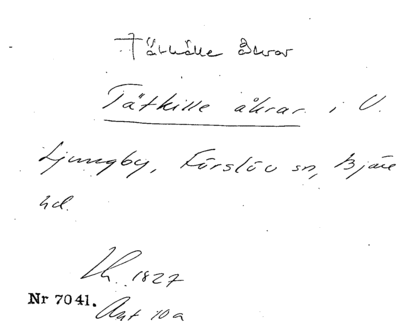 Tätkille åkrar
Tätkille åkrar i V.
Ljungby, Förslöv sn, Bjäre
hd.
Lh. 1827
Nr 7041.
Akt 10a